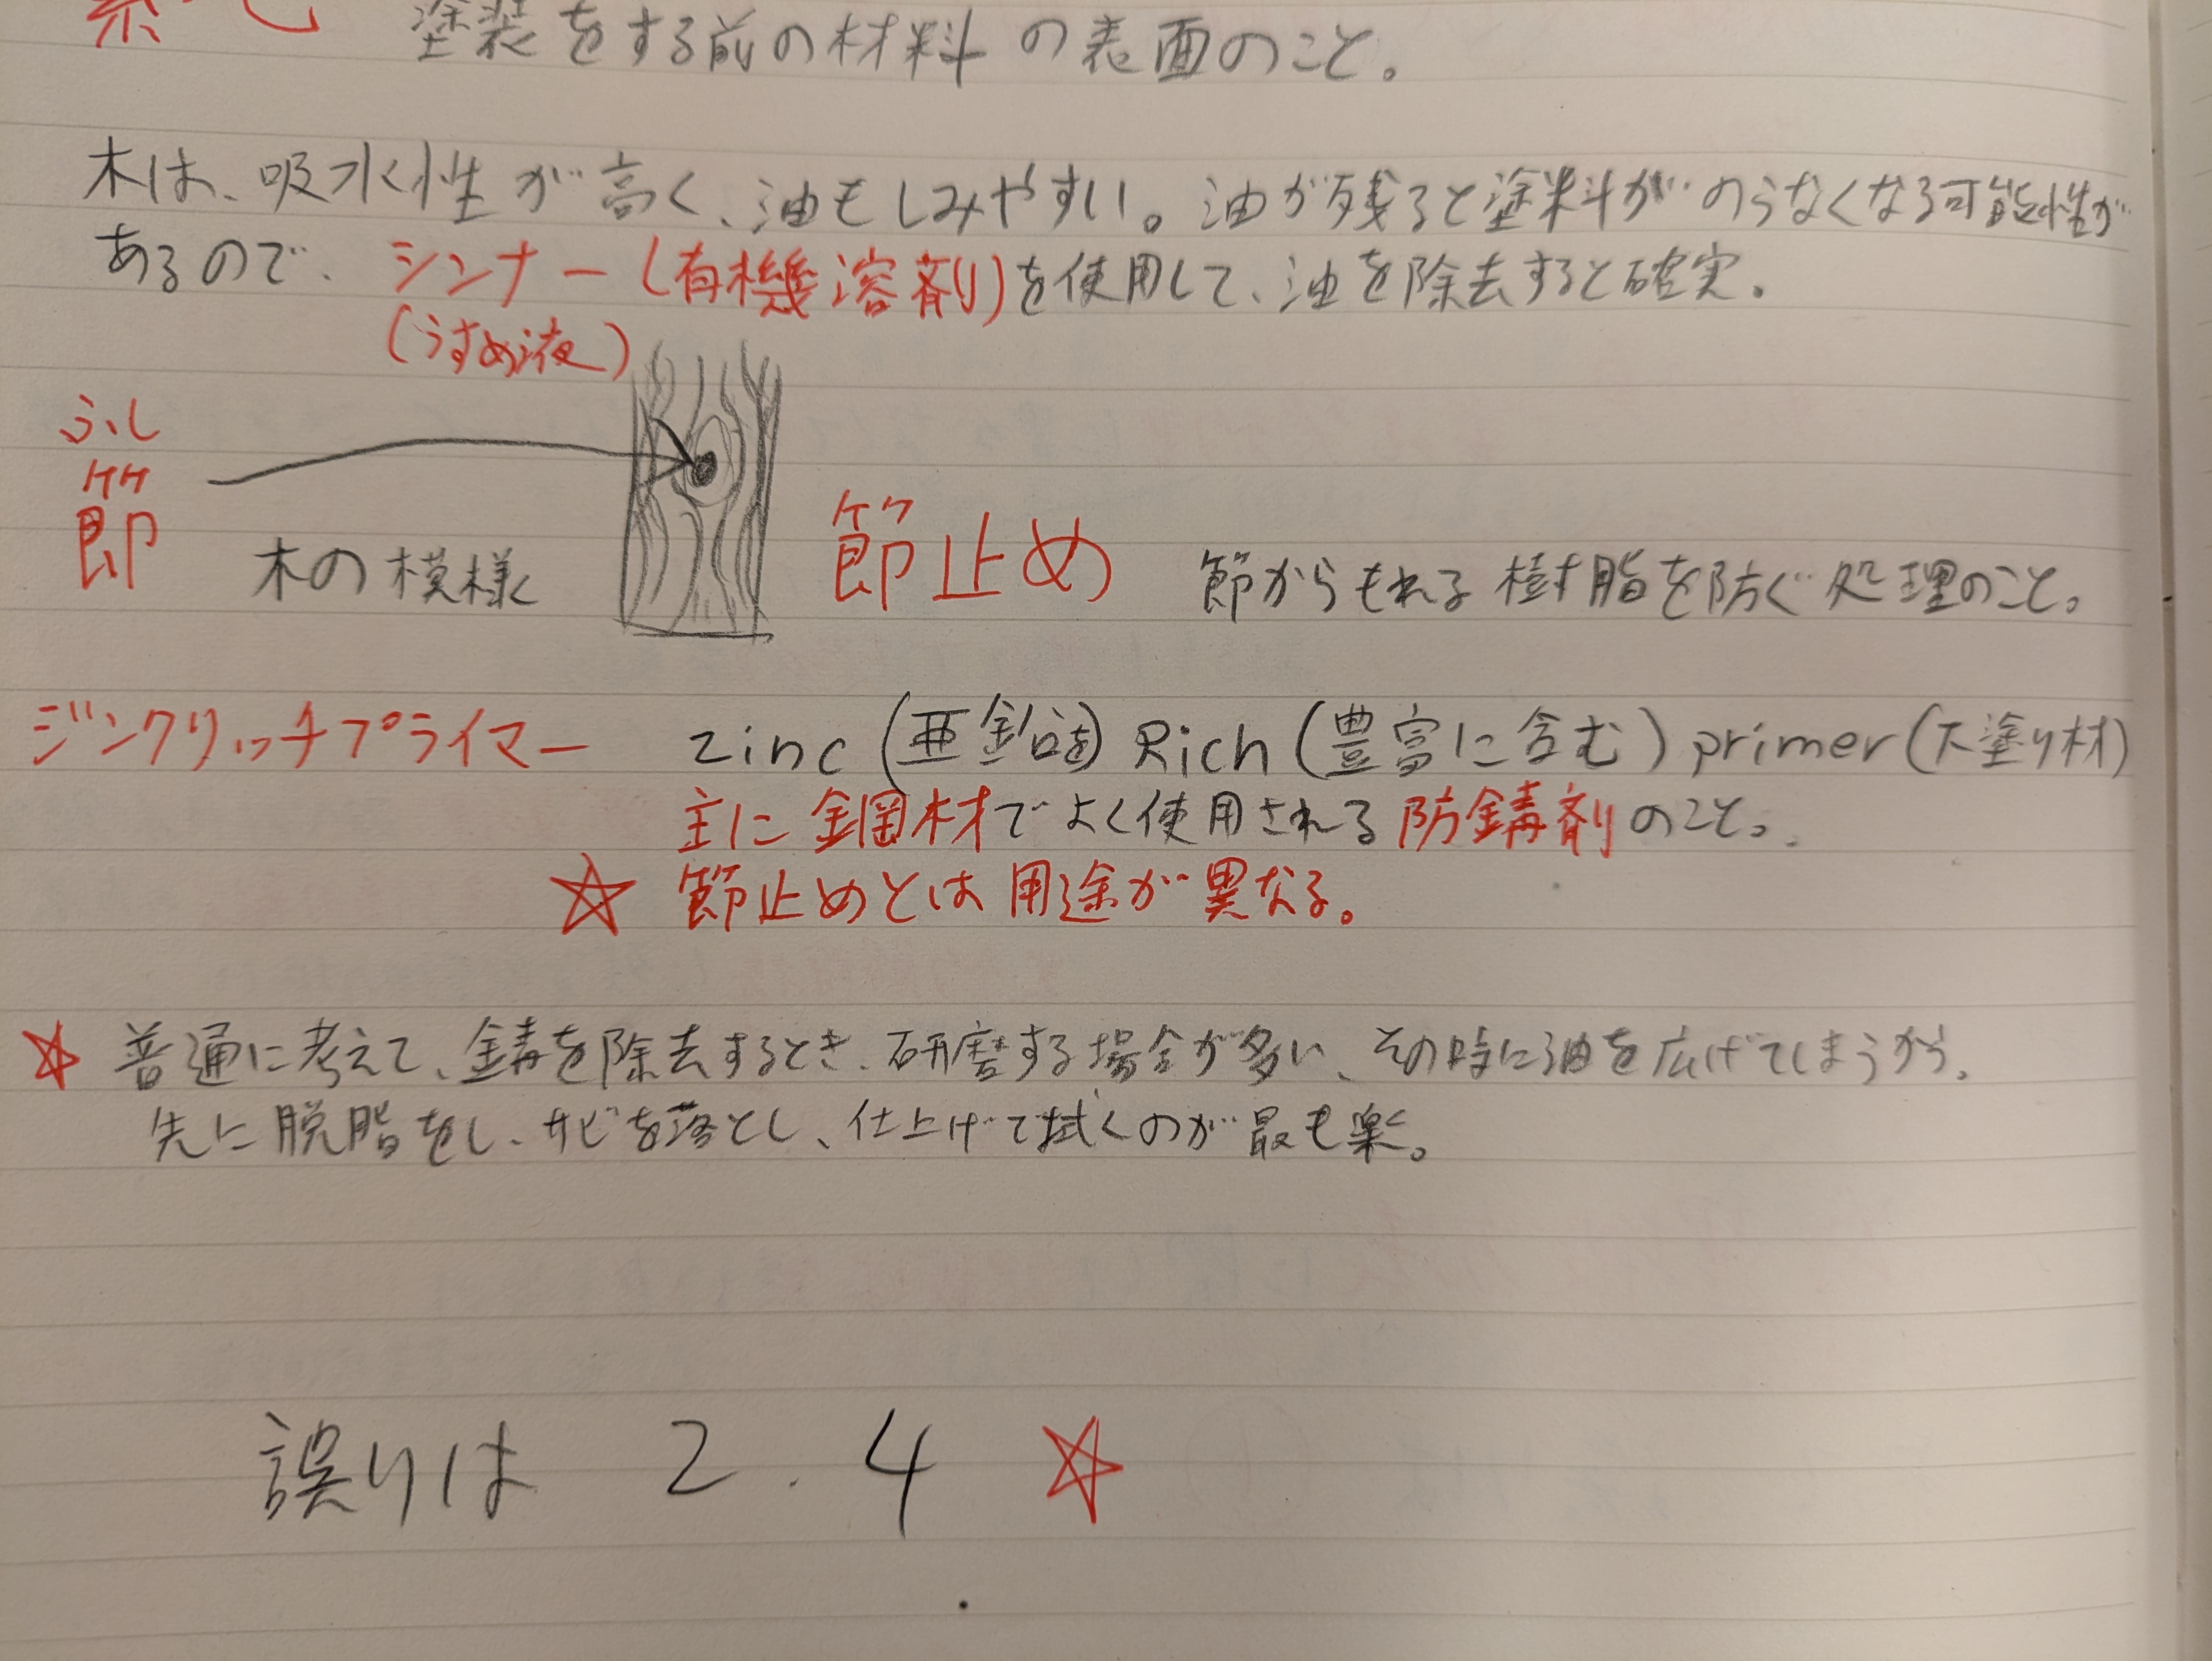 塗装をする前の材料の表面のこと。
木は、吸水性が高く、油もしみやすい。油が残ると塗料がのらなくなる可能性が
あるので、シンナー(有機溶剤)を使用して、油を除去すると確実。
(うすめ液)
ふし
節
木の模様
節止め 節からもれる樹脂を防ぐ処理のこと。
ジンクリッチプライマー zinc (亜鉛を) Rich (豊富に含む) primer (下塗り材)
主に鋼材でよく使用される防錆剤のこと。
☆ 節止めとは用途が異なる。
☆ 普通に考えて、錆を除去するとき、研磨する場合が多い、その時に油を広げてしまうから、
先に脱脂をし、サビを落とし、仕上げて拭くのが最も楽。
誤りは 2.4 ☆